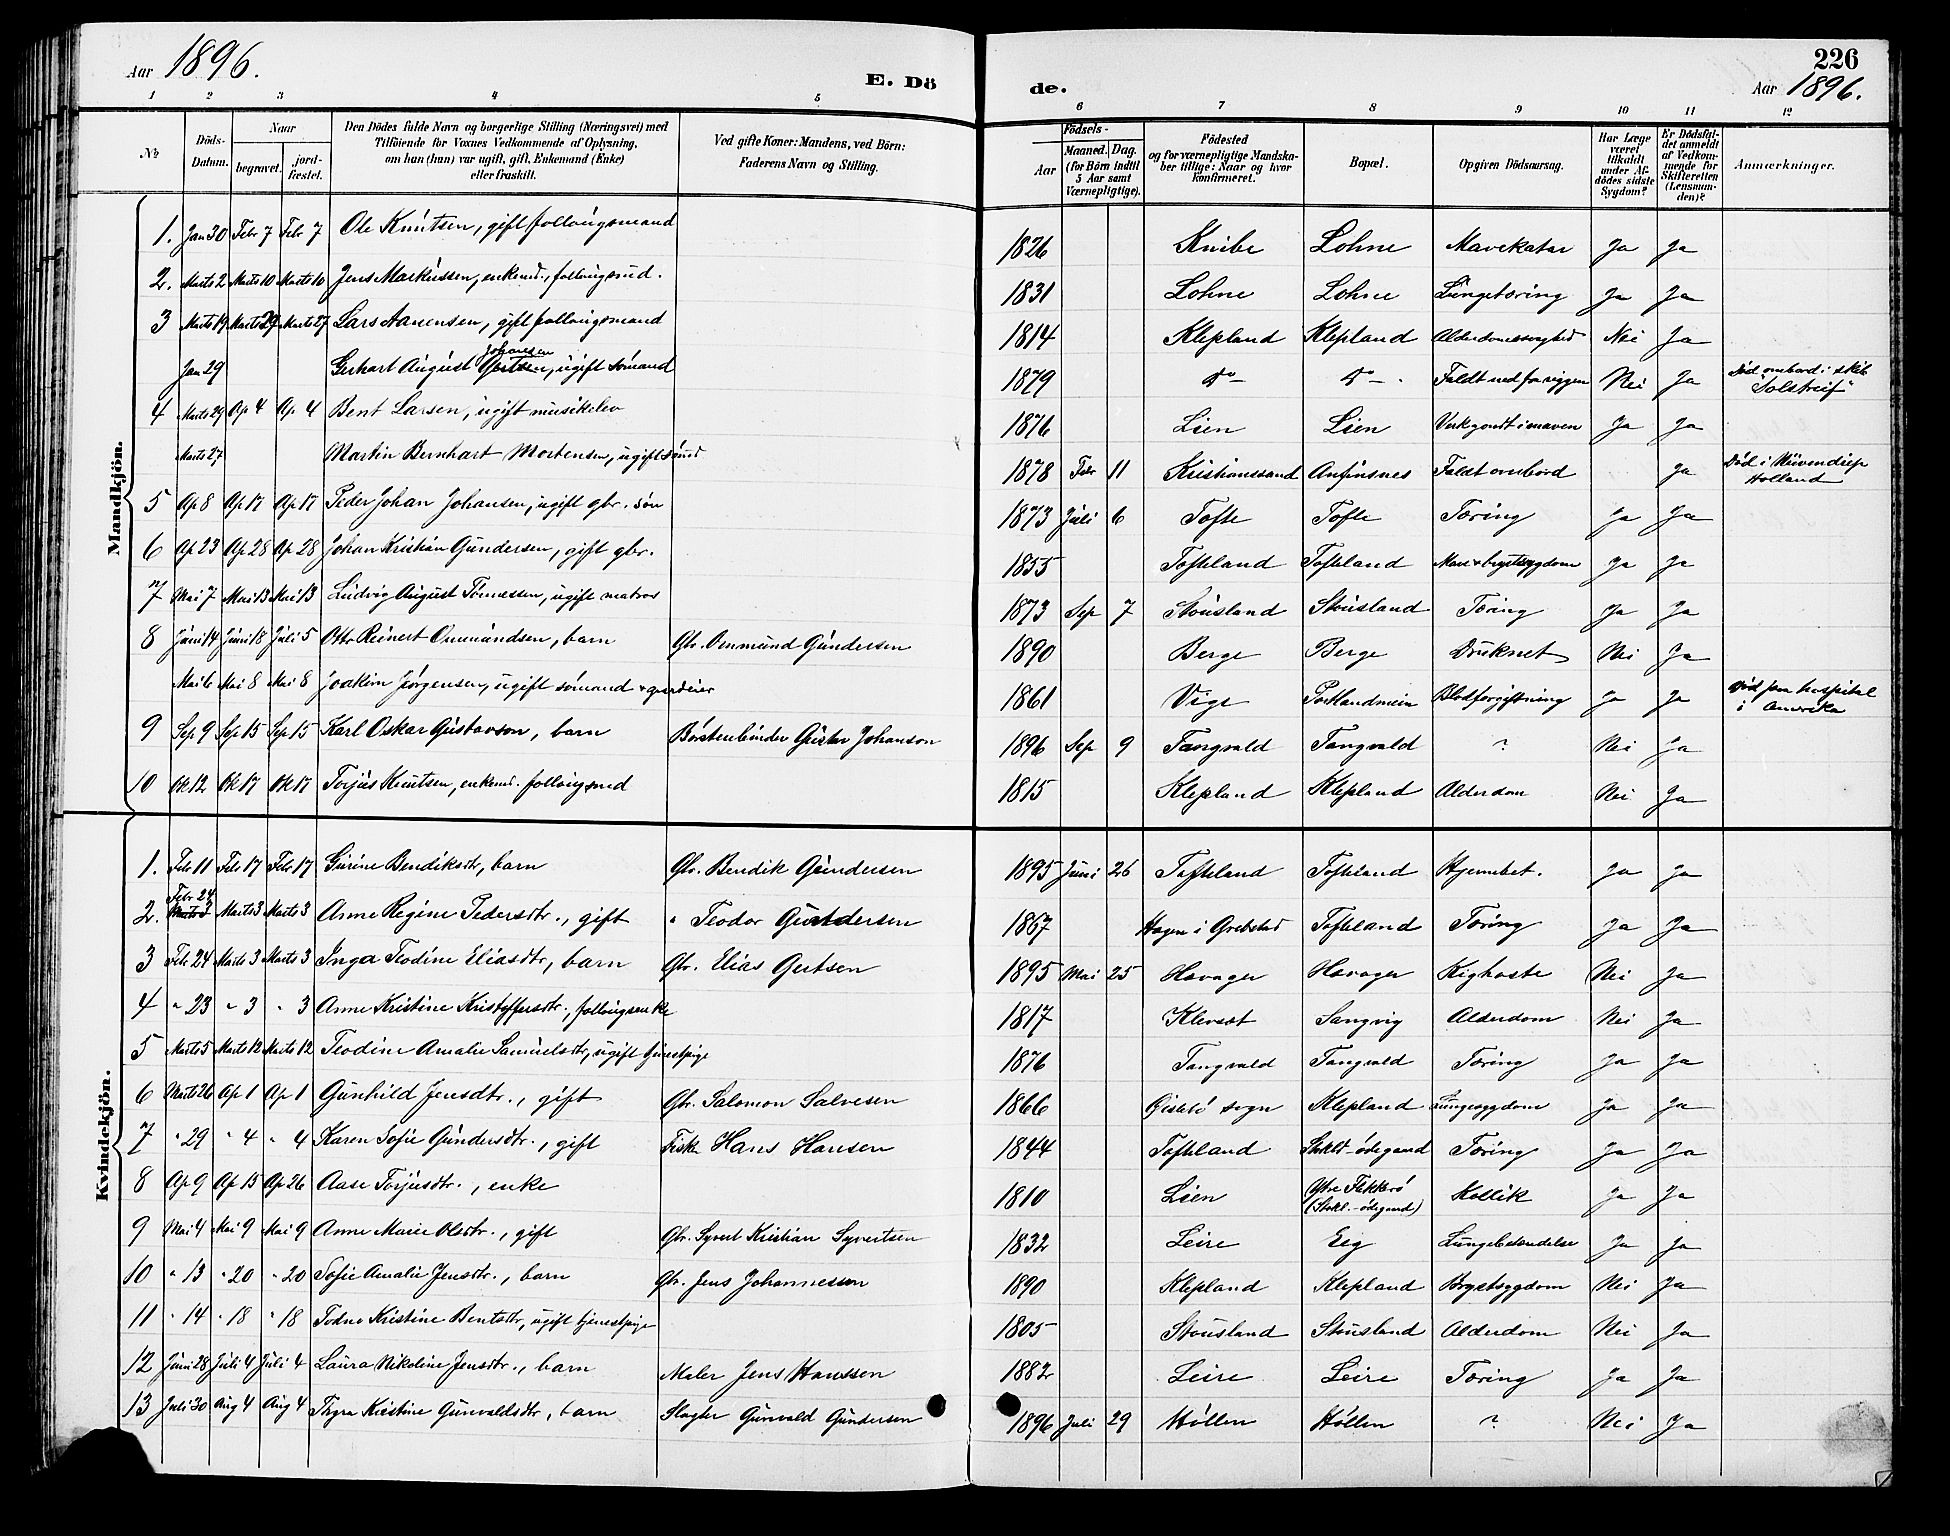 Aar 1896.
E. Dö
de.
226
Aar 1896.
1 2 3 4 5 6 7 8 9 10 11 12
No
Döds-Datum.
Naar
begravet.
jord-fæstet.
Den Dödes fulde Navn og borgerlige Stilling (Næringsvei) med
Tilföiende for Voxnes Vedkommende af Oplysning,
om han (hun) var ugift, gift, Enkemand (Enke)
eller fraskilt.
Ved gifte Koner: Mandens, ved Börn:
Faderens Navn og Stilling.
Födsels-
Aar
Maaned. Dag.
(for Börn indtil 5 Aar samt Værnepligtige).
Födested
og for værnepligtige Mandska-
ber tillige: Naar og hvor
konfirmeret.
Bopæl.
Opgiven Dödsaarsag.
Har Læge været tilkaldt under Af-dödes sidste Sygdom?
Er Dödsfal-det anmeldt af Vedkom-mende for Skifteretten (Lensman-den)?
Anmærkninger.
Mandkjön.
1. Jan 30 Febr 7 Febr 7 Ole Knutsen, gift follaugsmand 1826 Knibe Lohne Mavekatar Ja Ja
2. Marts 2 Marts 10 Marts 10 Jens Markussen, enkemd., follaugsmd. 1831 Lohne Lohne Lungetæring Ja Ja
3 Marts 19 Marts 27 Marts 27 Lars Aanensen, gift follaugsmand 1814 Klepland Klepland Alderdomssvaghed Nei Ja
Jan 29 Gerhart August Johansen, ugift sømand 1879 do — do — Faldt ned fra riggen Nei Ja Død ombord i skib "Solstreif"
4 Marts 29 Ap 4 Ap 4 Bent Larsen, ugift musikelev 1876 Lien Lien Verkgondt i maven Ja Ja
Marts 27 Martin Bernhart Mortensen, ugift sømd 1878 Febr 11 Kristianssand Anfinsnes Faldt ombord Ja Død i Holland
5 Ap 8 Ap 17 Ap 17 Peder Johan Johansen, ugift gbr. søn 1873 Juli 6 Tofte Tofte Tæring Ja Ja
6 Ap 23 Ap 28 Ap 28 Johan Kristian Gundersen, gift gbr. 1855 Tofteland Tofteland Mave & brystsygdom Ja Ja
7 Mai 7 Mai 13 Mai 13 Ludvig August Tønnessen, ugift matros 1873 Sep 7 Stousland Stousland Tæring Ja Ja
8 Juni 14 Juni 18 Juli 5 Otto Reinert Ommundsen, barn Gbr. Ommund Gundersen 1890 Berge Berge Druknet Nei Ja
Mai 6 Mai 8 Mai 8 Joakim Jørgensen, ugift sømand & gaardeier 1861 Vige Portlandmein Blodforgiftning Ja Ja Død paa hospital i Amerika
9 Sep 9 Sep 15 Sep 15 Karl Oskar Gustavson, barn Børstenbinder Gustav Johanson 1896 Sep 9 Tangvald Tangvald ? Nei Ja
10 Ok 12 Ok 17 Ok 17 Torjus Knutsen, enkemd. follaugsmd 1815 Klepland Klepland Alderdom Nei Ja
Kvindekjön.
1. Febr 11 Febr 17 Febr 17 Gurine Bendiksdtr, barn Gbr. Bendik Gundersen 1895 Juni 26 Tofteland Tofteland Hjernebet. Ja Ja
2. Febr 24 Marts 3 Marts 3 Anne Regine Pedersdtr., gift " Teodor Gundersen 1867 Hagen i Grebsted Tofteland Tæring Ja Ja
3 Febr 24 Marts 3 Marts 3 Inga Teodine Eliasdtr, barn Gbr. Elias Gertsen 1895 Mai 25 Havager Havager Kighoste Nei Ja
4 " 23 " 3 " 3 Anne Kristine Kristoffersdtr., follaugsenke 1817 Klevset Sangvig Alderdom Nei Ja
5 Marts 5 Marts 12 Marts 12 Teodine Amalie Samuelsdtr, ugift tjenestpige 1876 Tangvald Tangvald Tæring Ja Ja
6 Marts 26 Ap 1 Ap 1 Gunhild Jensdtr., gift Gbr. Salomon Salvesen 1866 Gislelø sogn Klepland Lungesygdom Ja Ja
7 " 29 " 4 " 4 Karen Sofie Gundersdtr., gift Fisker Hans Hansen 1844 Tofteland Stokl.-ødegaard Tæring Ja Ja
8 Ap 9 Ap 15 Ap 26 Aase Torjusdtr., enke 1810 Lien Ytre Flekkerø (Stokl.-ødegaard) Kollik Ja Ja
9 Mai 4 Mai 9 Mai 9 Anne Marie Olsdtr., gift Gbr. Syvert Kristian Syvertsen 1832 Leire Eeg Lungebetændelse Ja Ja
10 " 13 " 20 " 20 Sofie Amalie Jensdtr., barn Gbr. Jens Johannessen 1890 Klepland Klepland Brystsygdom Nei Ja
11 " 14 " 18 " 18 Todne Kristine Bentsdtr, ugift tjenestpige 1805 Stousland Stousland Alderdom Nei Ja
12 Juni 28 Juli 4 Juli 4 Laura Nikoline Jensdtr., barn Maler Jens Hanssen 1882 Leire Leire Tæring Ja Ja
13 Juli 30 Aug 4 Aug 4 Thyra Kristine Gunvaldsdtr, barn Slagter Gunvald Gundersen 1896 Juli 29 Høllen Høllen ? Nei Ja